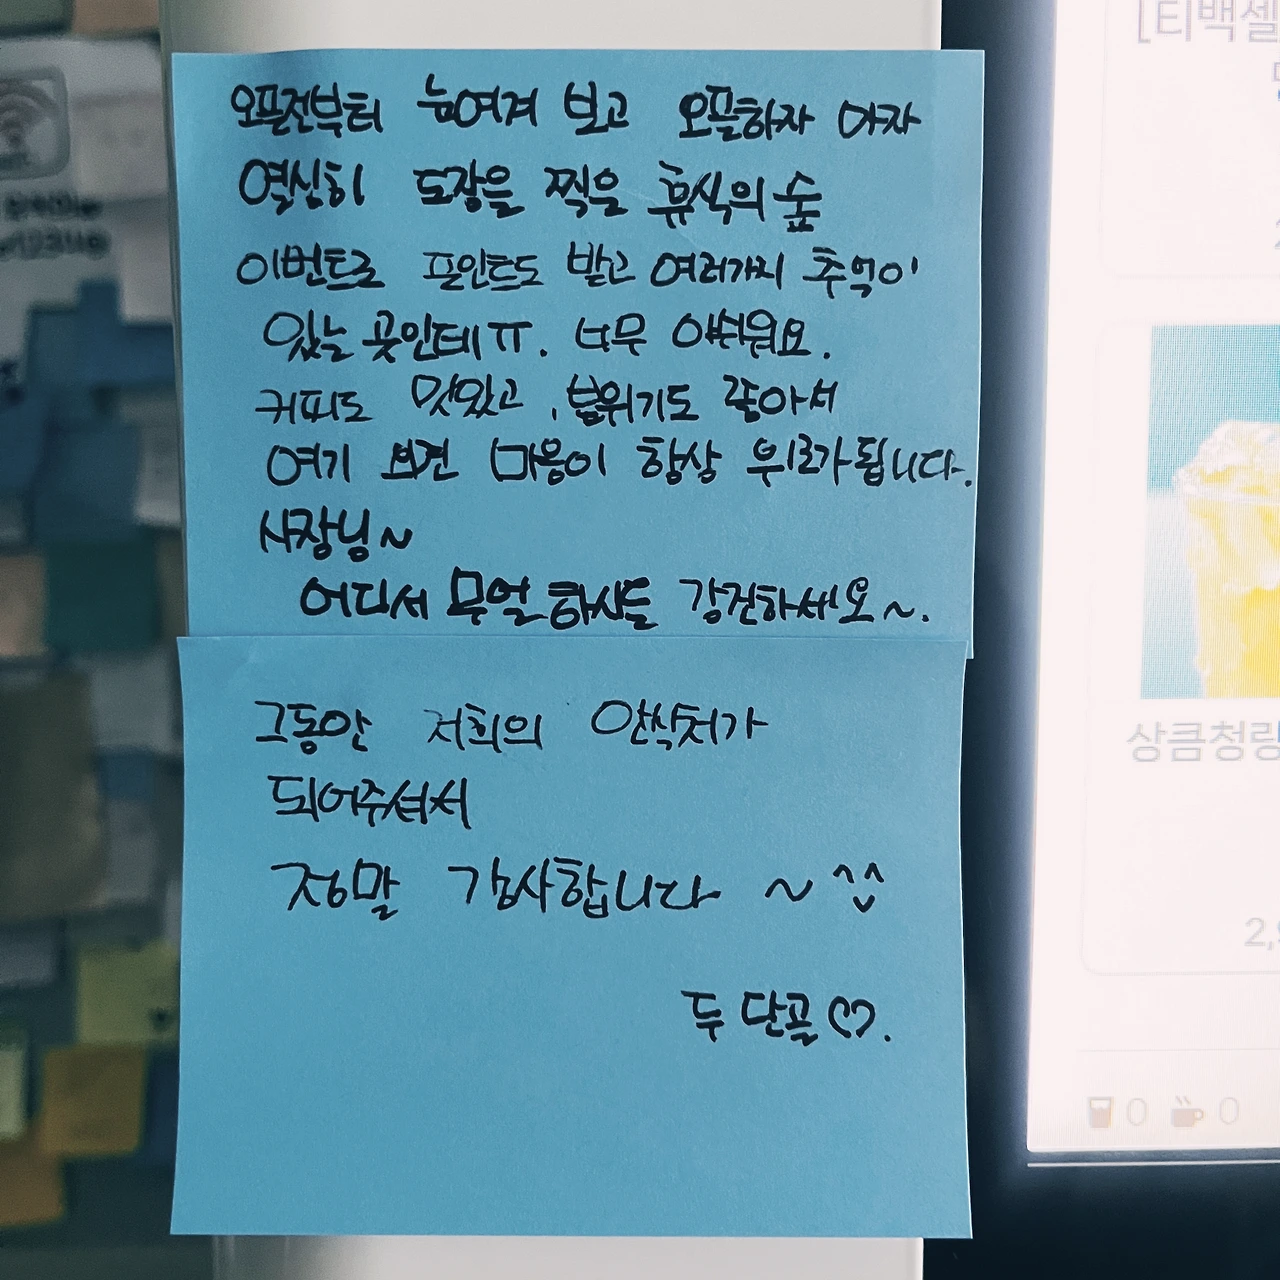 오픈전부터 눈여겨 보고 오픈하자 마자
열심히 도장을 찍은 휴식의 숲
이벤트로 포인트도 받고 여러가지 추억이
있는 곳인데ㅠ. 너무 아쉬워요.
커피도 맛있고, 분위기도 좋아서
여기 오면 마음이 항상 위로가됩니다.
사장님~
어디서 무얼 하시든 강건하세요~.
그동안 저희의 안식처가
되어주셔서
정말 감사합니다 ~ ^^
두 단골♡.
[티백셀
상큼청량
2,
0 0